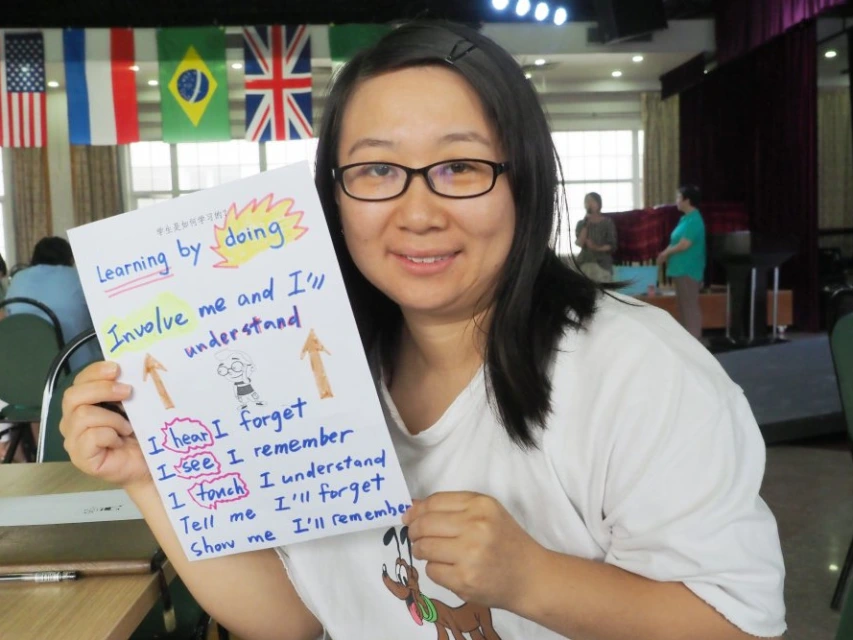 学生是如何学习的?
Learning by doing
Involve me and I'll
understand
I hear I forget
I see I remember
I touch I understand
Tell me I'll forget
Show me I'll remember